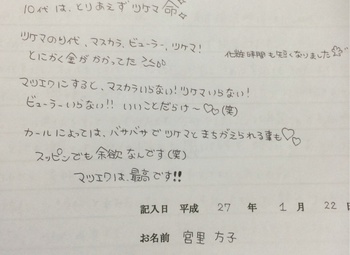 10代は、とりあえずツケマ命
ツケマの時代、マスカラ、ビューラー、ツケマ!
とにかく金がかかってた
化粧時間も短くなりました☆
マツエクにすると、マスカラいらない!ツケマいらない!
ビューラーいらない!! いいことだらけ〜♡♡(笑)
カールによっては、バサバサでツケマとまちがえられる事も♡♡
スッピンでも余欲なんです(笑)
マツエクは最高です!!
記入日 平成 27 年 1 月 22 日
お名前 宮里 方子